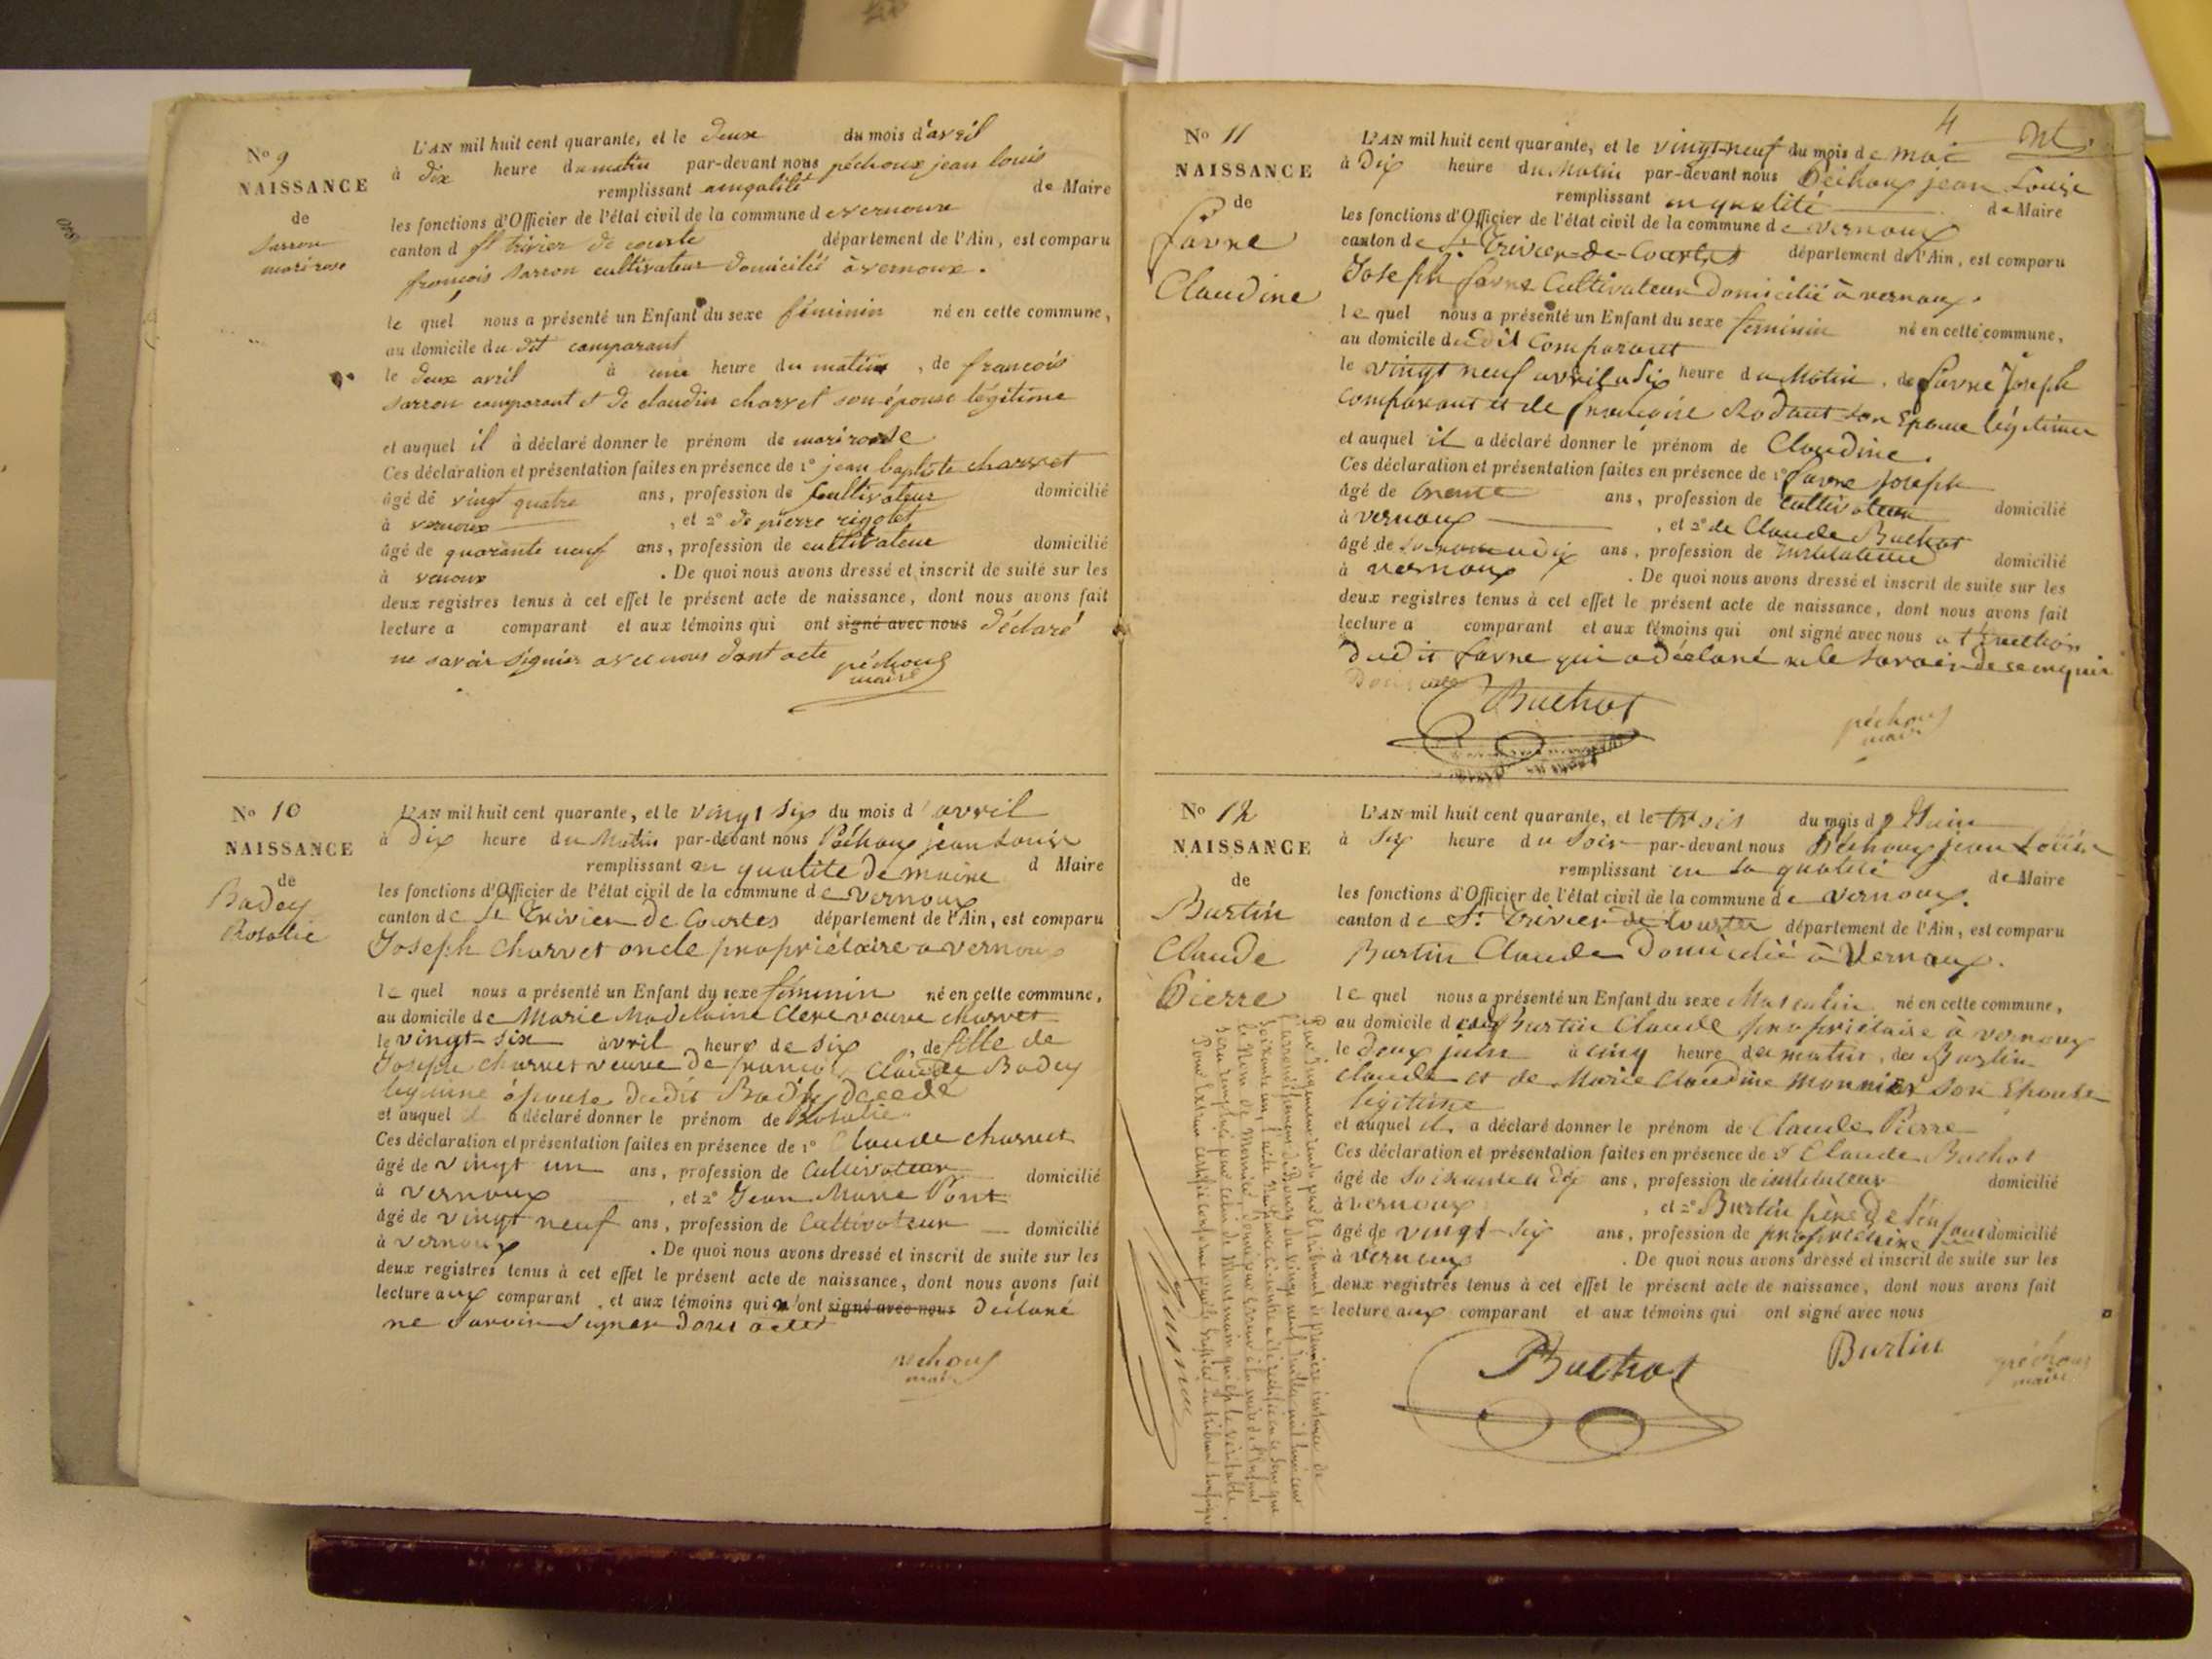 No 9
NAISSANCE
de
Sarron
marirose
L'AN mil huit cent quarante, et le deux du mois d'avril
à dix heure du matin par-devant nous péchoux jean louis
remplissant de Maire
les fonctions d'Officier de l'état civil de la commune de vernoux
canton d st trivier de courte département de l'Ain, est comparu
francois sarron cultivateur domicilié à vernoux.
le quel nous a présenté un Enfant du sexe féminin né en cette commune,
au domicile du dit comparant
le deux avril à une heure du matin, de francois
sarron comparant et de claudine charvet son épouse légitime
et auquel il à déclaré donner le prénom de marirose
Ces déclaration et présentation faites en présence de 1° jean baptiste charvet
âgé de vingt quatre ans, profession de cultivateur domicilié
à vernoux, et 2° de pierre rigolet
âgé de quarante neuf ans, profession de cultivateur domicilié
à venoux. De quoi nous avons dressé et inscrit de suite sur les
deux registres tenus à cet effet le présent acte de naissance, dont nous avons fait
lecture a comparant et aux témoins qui ont signé avec nous déclaré
ne savoir signier avec nous dont acte péchoux
maire
No 10
NAISSANCE
de
Badey
Rosalie
L'AN mil huit cent quarante, et le vingt six du mois d'avril
à Dix heure du Matin par-devant nous Péchoux jean Louis
remplissant en qualité de maire d Maire
les fonctions d'Officier de l'état civil de la commune de vernoux
canton de St Trivier de Courtes département de l'Ain, est comparu
Joseph Charvet oncle propriétaire a vernoux
le quel nous a présenté un Enfant du sexe féminin né en cette commune,
au domicile de Marie Madelaine Clere veuve charvet
le vingt-six avril heure de six, de fille de
Josephe charvet veuve de francois Claude Badey
légitime épouse dudit Badey décédé
et auquel il a déclaré donner le prénom de Rosalie
Ces déclaration et présentation faites en présence de 1° Claude charvet
âgé de vingt un ans, profession de Cultivateur domicilié
à vernoux, et 2° Jean Marie Pont
âgé de vingt neuf ans, profession de Cultivateur domicilié
à vernoux. De quoi nous avons dressé et inscrit de suite sur les
deux registres tenus à cet effet le présent acte de naissance, dont nous avons fait
lecture aux comparant, et aux témoins qui n'ont signé avec nous déclaré
ne savoir signer dont acte
péchoux
maire
4
No 11
NAISSANCE
de
favre
Claudine
L'AN mil huit cent quarante, et le vingt-neuf du mois de mai
à Dix heure du Matin par-devant nous Péchoux jean Louis
remplissant en qualité de Maire
les fonctions d'Officier de l'état civil de la commune de vernoux
canton de St. Trivier-de-Courtes département de l'Ain, est comparu
Joseph favre Cultivateur Domicilié à vernoux.
le quel nous a présenté un Enfant du sexe feminin né en cette commune,
au domicile dudit Comparant
le vingt neuf avril a dix heure du Matin, de favre Joseph
Comparant et de francoise Rodaut son Epouse légitime
et auquel il a déclaré donner le prénom de Claudine.
Ces déclaration et présentation faites en présence de 1° favre joseph
âgé de trente ans, profession de cultivateur domicilié
à vernoux, et 2° de Claude Buchot
âgé de soixante dix ans, profession de Instituteur domicilié
à vernoux. De quoi nous avons dressé et inscrit de suite sur les
deux registres tenus à cet effet le présent acte de naissance, dont nous avons fait
lecture a comparant et aux témoins qui ont signé avec nous
dudit favre qui a déclaré ne le savoir de ce enquis
Buchot
péchoux
maire
No 12
NAISSANCE
de
Burtin
Claude
Pierre
L'AN mil huit cent quarante, et le trois du mois de Juin
à six heure du Soir par-devant nous Péchoux jean Louis
remplissant en sa qualité de Maire
les fonctions d'Officier de l'état civil de la commune de vernoux.
canton de St. Trivier de Courtes département de l'Ain, est comparu
Burtin Claude Domicilié à Vernoux.
le quel nous a présenté un Enfant du sexe Masculin né en cette commune,
au domicile dudit Burtin Claude propriétaire à vernoux
le deux juin à cinq heure du matin, de Burtin
Claude et de Marie Claudine Monnier son Epouse
légitime
et auquel il a déclaré donner le prénom de Claude Pierre
Ces déclaration et présentation faites en présence de Claude Buchot
âgé de soixante dix ans, profession de instituteur domicilié
à vernoux, et 2° Burtin père de l'enfant
âgé de vingt-six ans, profession de propriétaire domicilié
à vernoux. De quoi nous avons dressé et inscrit de suite sur les
deux registres tenus à cet effet le présent acte de naissance, dont nous avons fait
lecture aux comparant et aux témoins qui ont signé avec nous
Buchot
Burtin
péchoux
maire
Par jugement rendu par le tribunal de première instance de